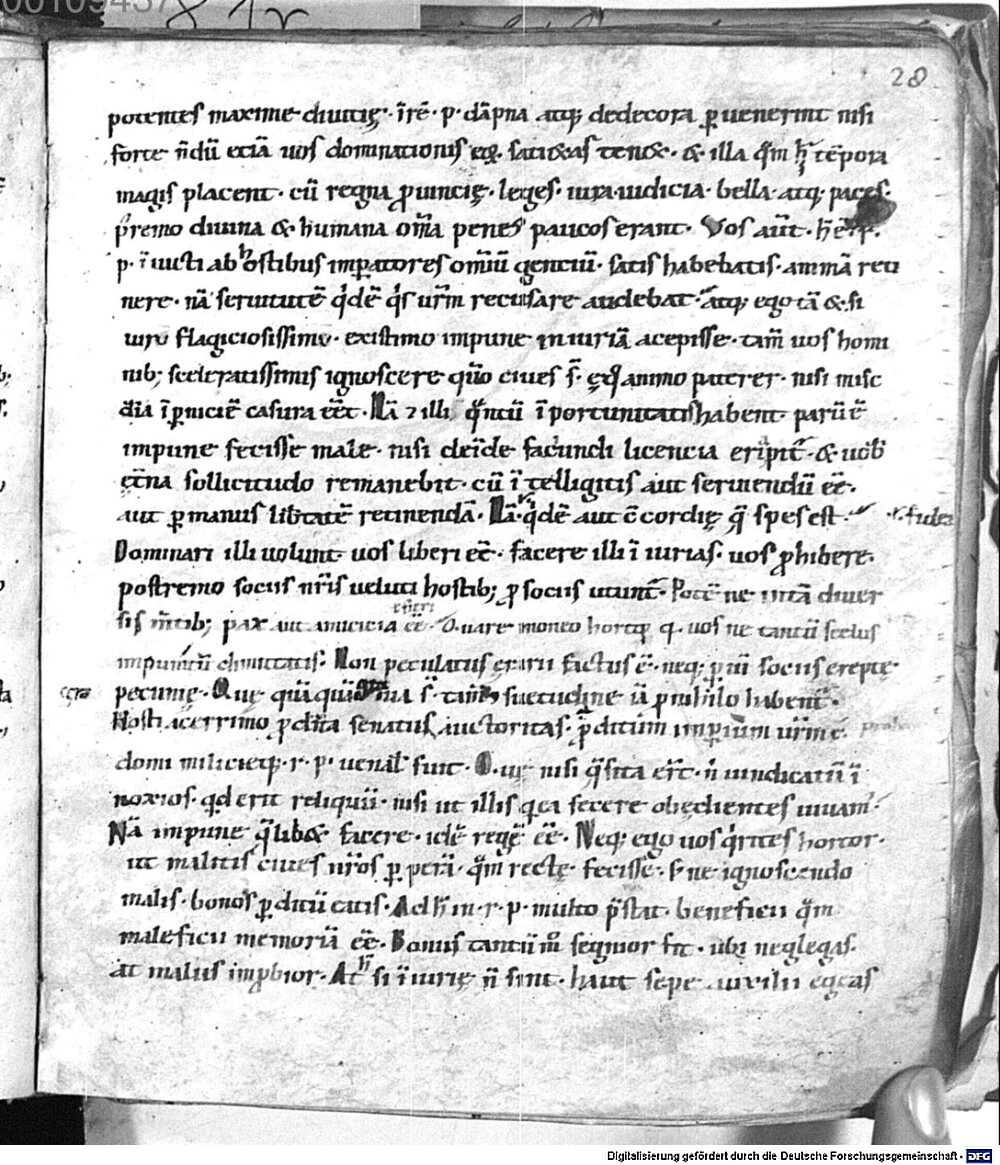 28
potentes maxime diuitię · ĩ rẽ · p · dãpna atq; dedecora puenerint nisi
forte ñdũ etiã uos dominationis eoꝝ sati&as ten& · & illa qm̃ h̃ tẽpora
magis placent · cũ regna ꝓuincię · leges · iura · iudicia · bella · atq; paces ·
p̃remo diuina & humana om̃a penes paucos erant · Vos aut̃ · h̃ ẽ · r̃ ·
p · ĩuicti ab hostibus impatores om̃iũ gentiũ · satis habebatis · animã reti
nere · nã seruitutẽ q̇dẽ q̇s ur̃m recusare audebat · atq; ego tã&si
uiro flagitiosissimo · existimo impune iniuriã acepisse · tam̃ uos homi
nib; sceleratissimis ignoscere qm̃o ciues s̃ · ęq̇ animo paterer · nisi misc̃
dia ĩ pniciẽ casura eẽt · Nã ⁊ illi q̃ntũ ĩportunitatis habent parũ ẽ
impune fecisse male · nisi deĩde faciundi licencia eripit̃ · & uob̃
ęt̃na sollicitudo remanebit · cũ ĩtelligitis aut seruiendũ eẽ ·
aut p manus lib̃tatẽ retinendã · Nã q̇dẽ aut c̃cordię q̃ spes est ·
Dominari illi uolunt uos liberi eẽ · facere illi ĩiurias · uos ꝓhibere ·
postremo sociis nr̃is ueluti hostib; ꝓ sociis utunt̃ · Potẽ ne ĩ tã diuer
sis m̃tib; pax aut amicicia eẽ · Quare moneo hortorq; uos ne tantũ scelus
impunitũ dimittatis · Non peculatus ęrarii factus ẽ · neq; p uĩ sociis ereptę
pecunię · Quę quãquã s̃ · tam̃ suetudine iã p nihilo habent̃ ·
Hosti acerrimo ꝓdita senatus auctoritas · ꝓditum imperium ur̃m ẽ ·
domi milicięq; · r · p · uenal̃ fuit · Quę nisi q̃sita er̃t · ñ uindicatũ ĩ
noxios · qd̃ erit reliquũ · nisi ut illis q ea fecere obędientes uiuam̃ ·
Nã impune q̃lib& facere · idẽ regẽ eẽ · Neq; ego uos q̇rites hortor ·
ut malitis ciues nr̃os p perã · q̃m recte fecisse · s; ne ignoscendo
malis · bonos pditũ eatis · Ad h̃ in · r · p · multo p̃stat · beneficii q̃m
maleficii memorã eẽ · Bonus tantũm̃ segnior fit · ubi neglegas ·
at malus imꝓbior · At h̃ si ĩiurię ñ sint · haut sepe auxilii egeas
Digitalisierung gefördert durch die Deutsche Forschungsgemeinschaft · DFG